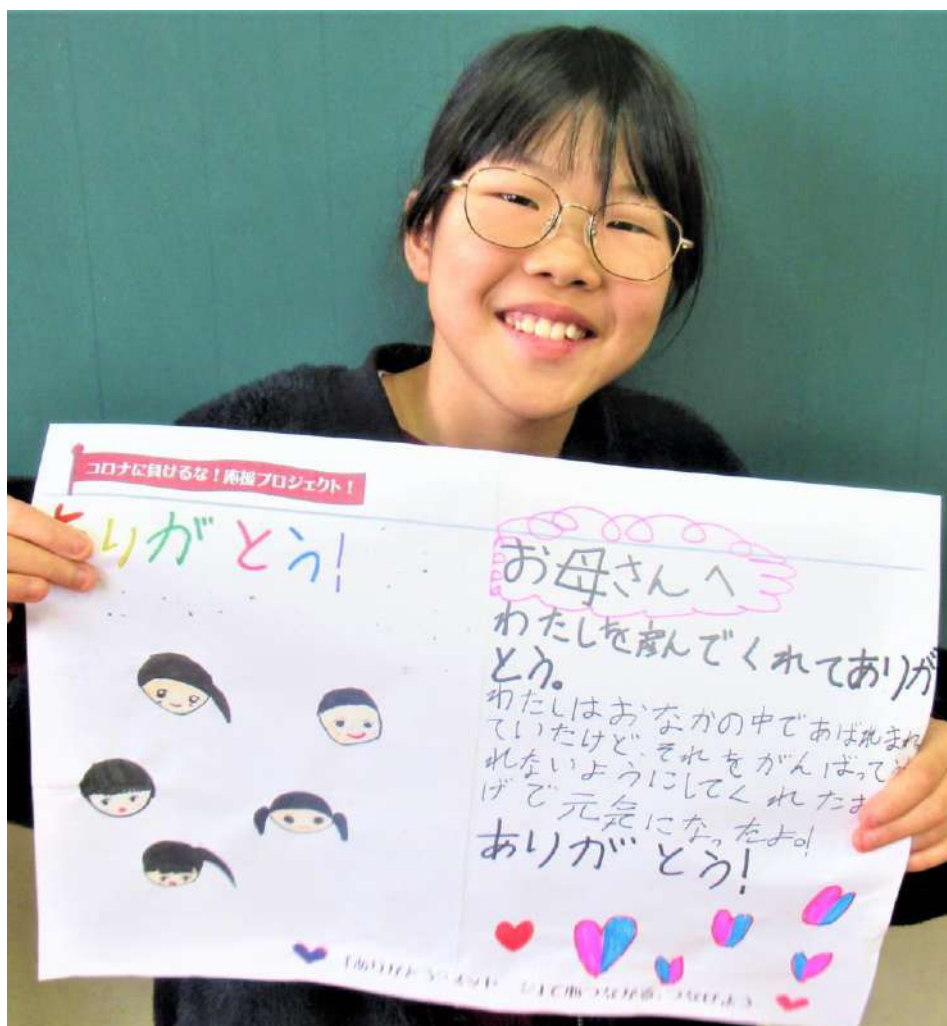 コロナに負けるな！応援プロジェクト！
ありがとう！
お母さんへ
わたしを産んでくれてありが
とう。
わたしはおなかの中であばれまわっ
ていたけど、それをがんばって
れないようにしてくれたお
げで元気になったよ。！
ありがとう！